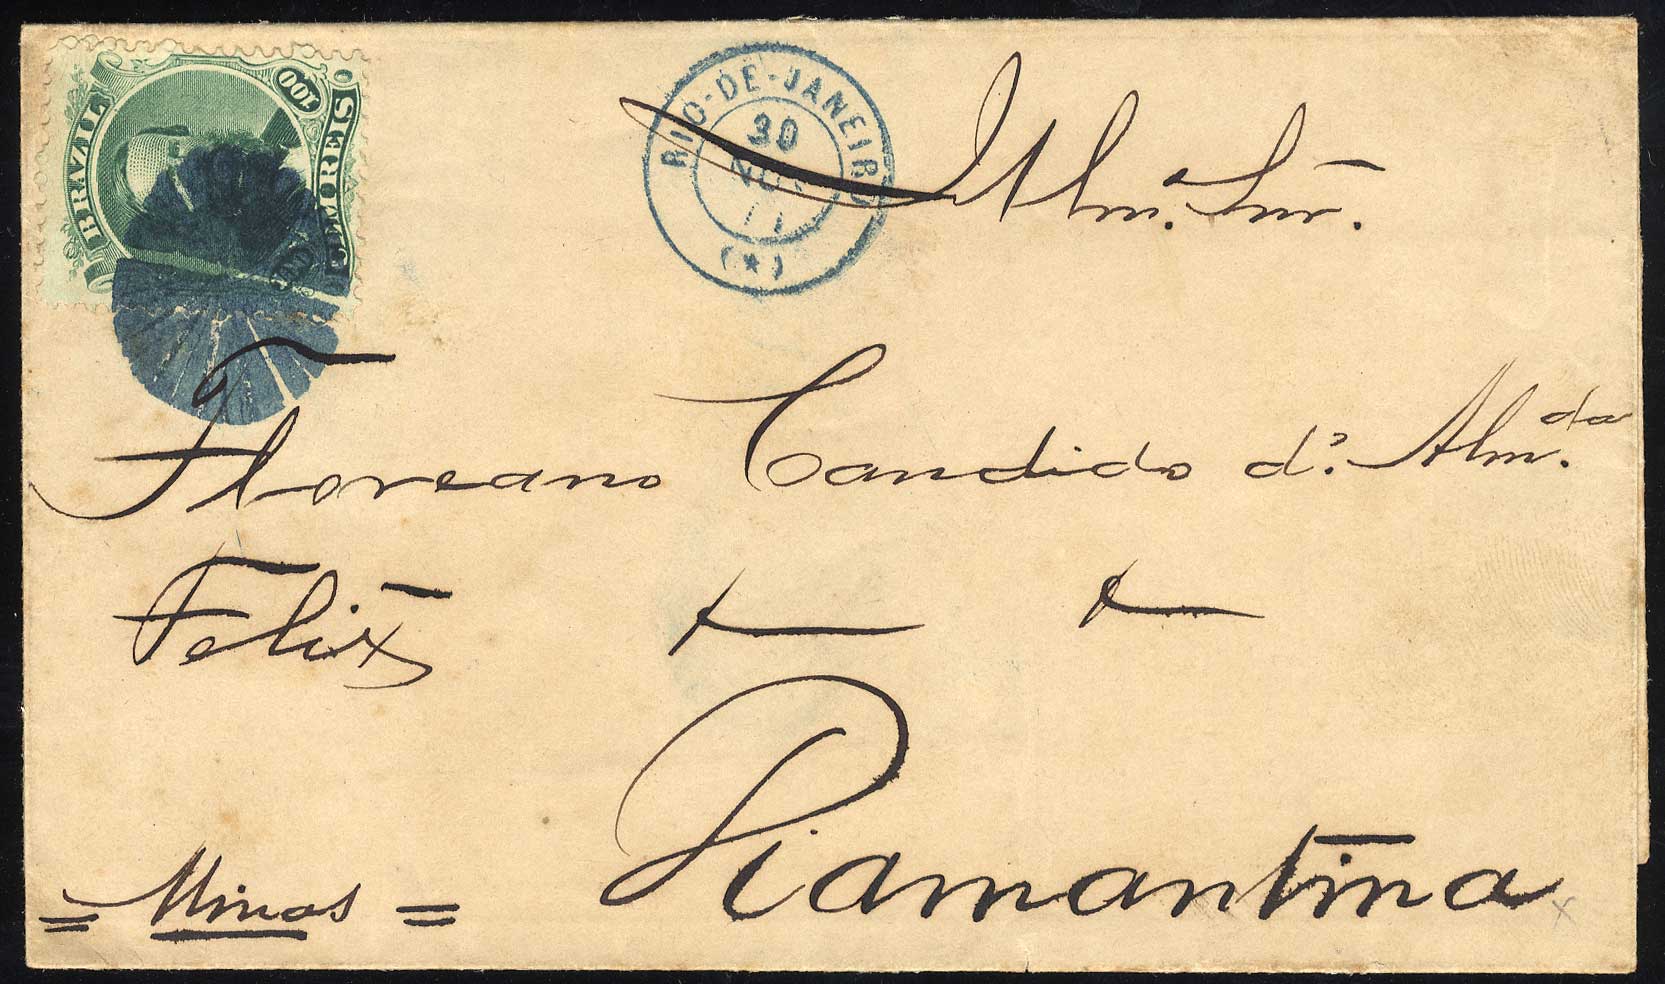 BRAZIL
100
CEM REIS
RIO-DE-JANEIRO
30
NOV
(*)
Illm.º Snr.
Floreano Candido d'. Alm.da
Felix
Diamantina
= Minas =